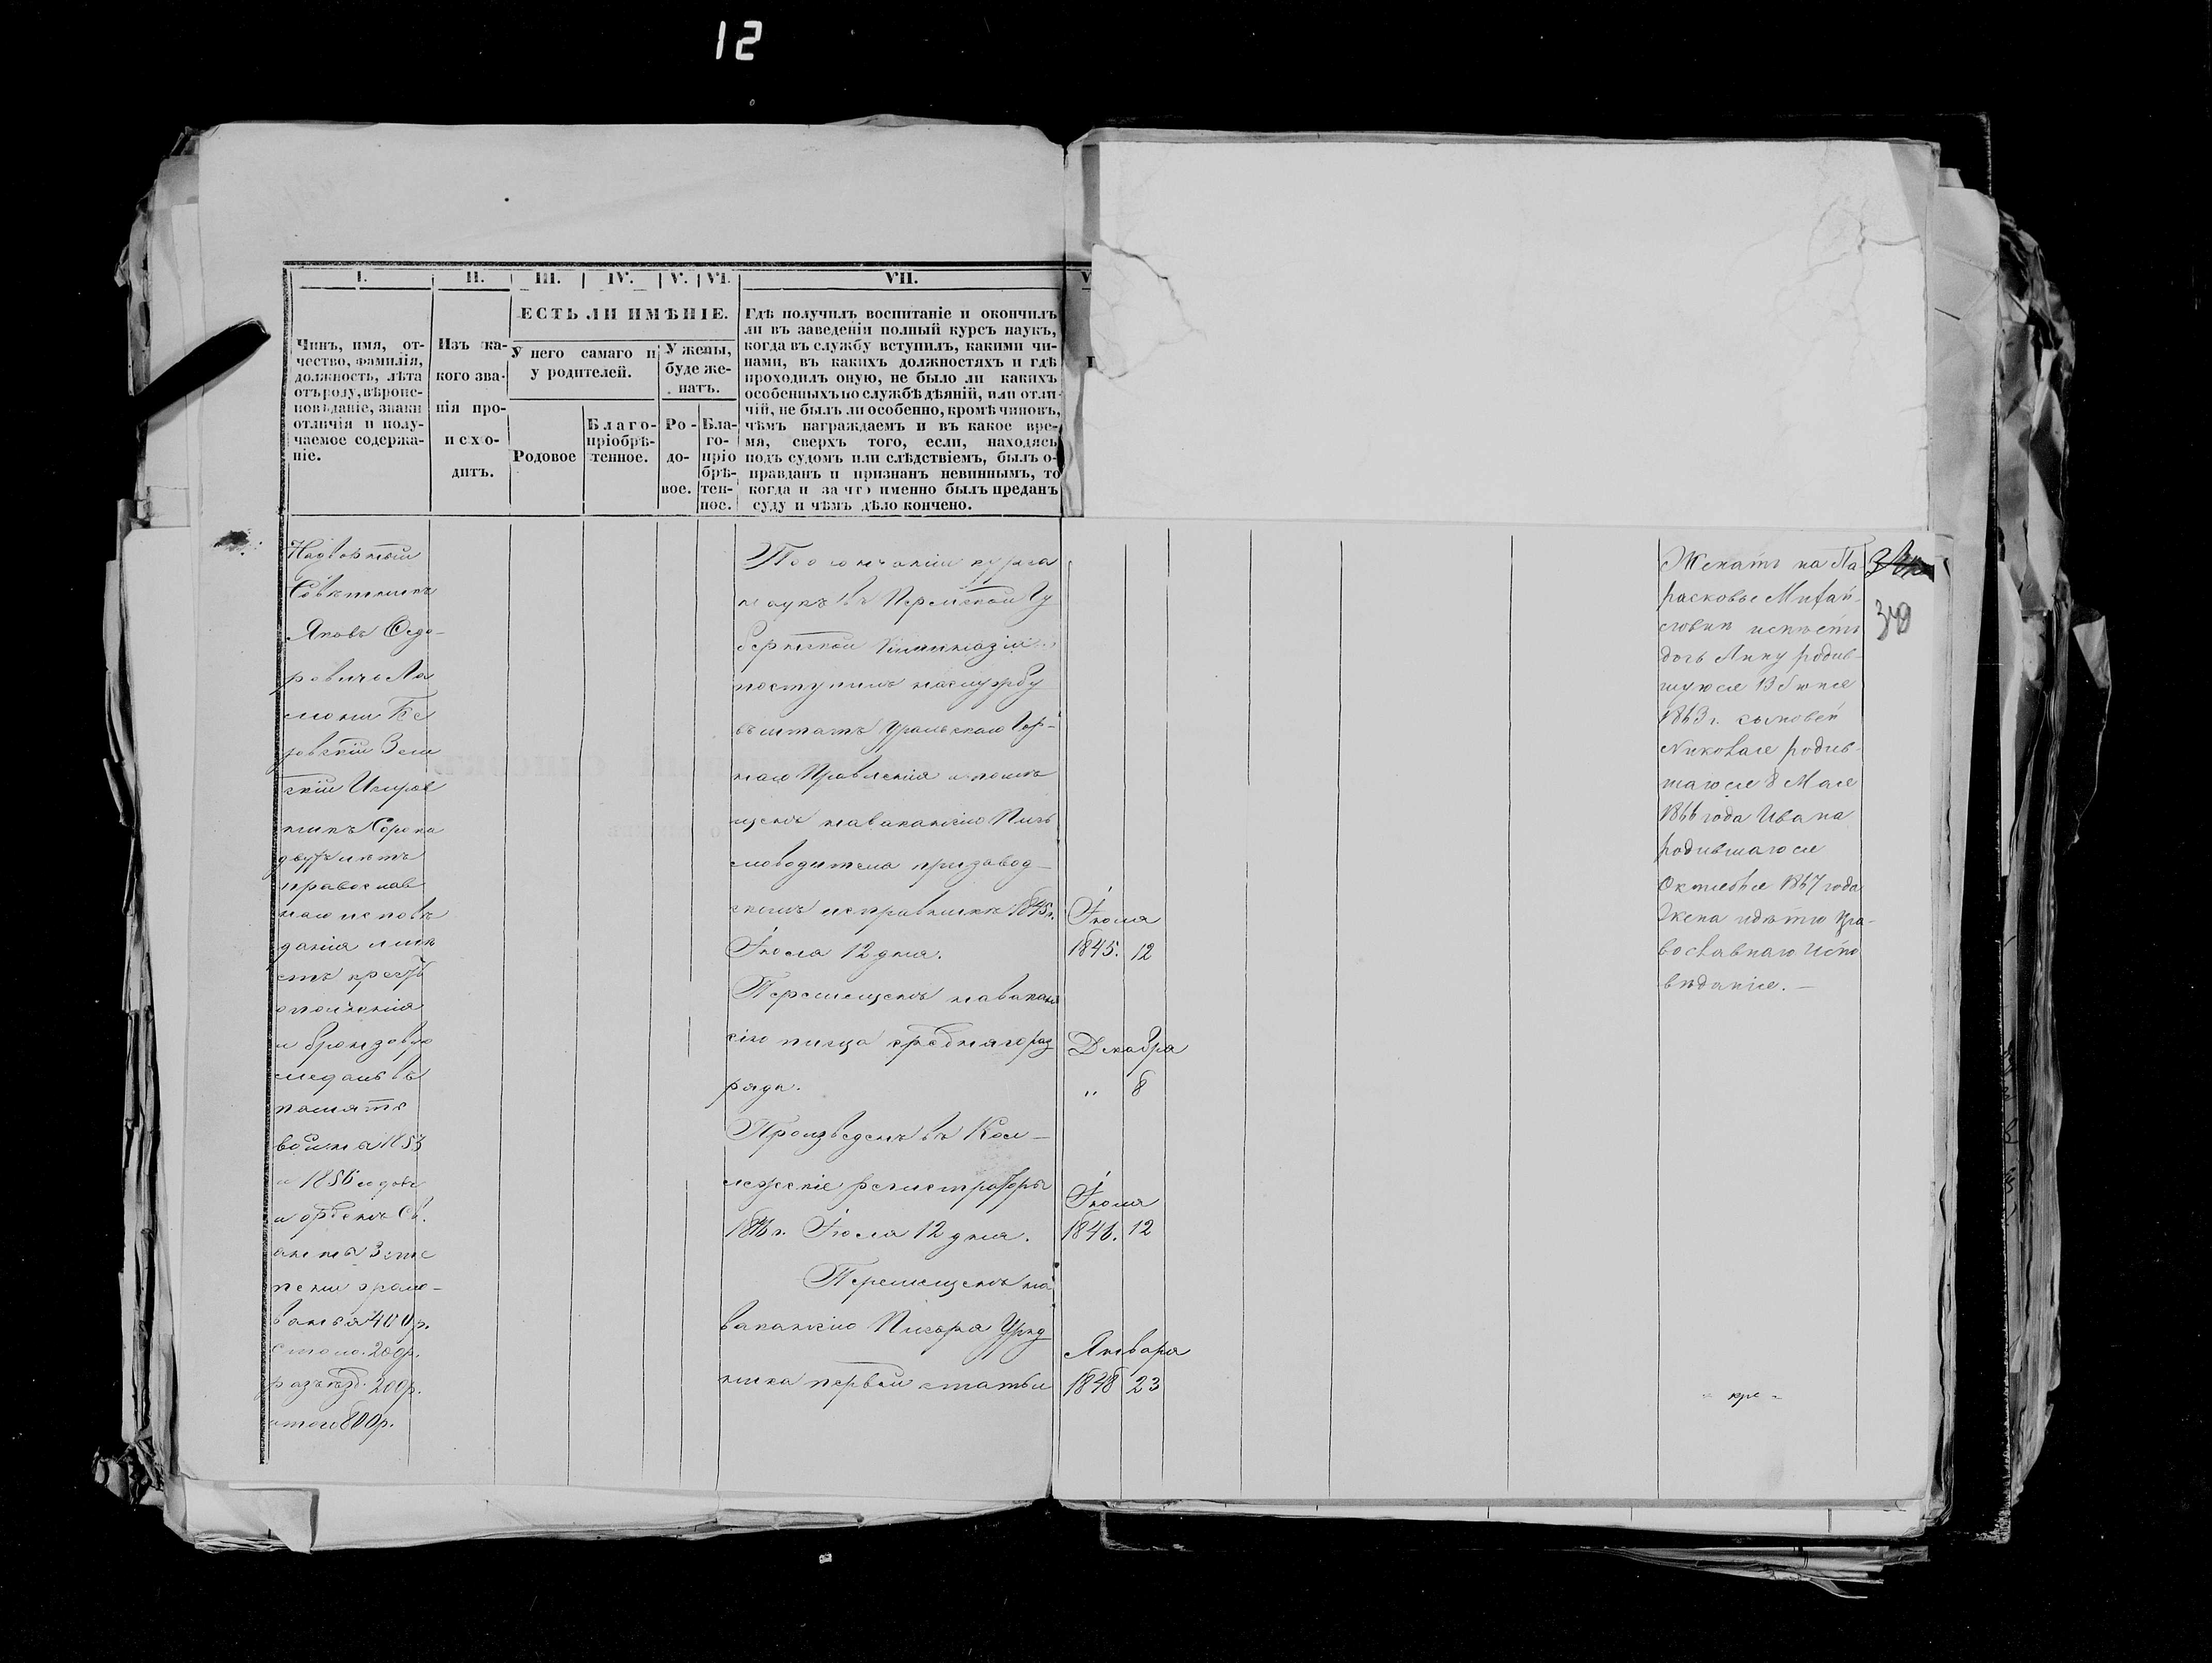 12
I.
II.
III.
IV.
V.
VI.
VII.
ЕСТЬ ЛИ ИМѢНІЕ.
Чинъ, имя, от-
чество, фамилія,
должность, лѣта
отъ роду, вѣроис-
повѣданіе, знаки
отличія и полу-
чаемое содержа-
ніе.
Изъ ка-
кого зва-
нія про-
исхо-
дитъ.
У него самаго и
у родителей.
Родовое
Благо-
пріобрѣ-
тенное.
У жены,
буде же-
натъ.
Ро-
до-
вое.
Бла-
го-
пріо
брѣ-
тен-
ное.
Гдѣ получилъ воспитаніе и окончилъ
ли въ заведеніи полный курсъ наукъ,
когда въ службу вступилъ, какими чи-
нами, въ какихъ должностяхъ и гдѣ
проходилъ оную, не было ли какихъ
особенныхъ по службѣ дѣяній, или отли-
чій, не былъ ли особенно, кромѣ чиновъ,
чѣмъ награждаемъ и въ какое вре-
мя, сверхъ того, если, находясь
подъ судомъ или слѣдствіемъ, былъ о-
правданъ и признанъ невиннымъ, то
когда и за что именно былъ преданъ
суду и чѣмъ дѣло кончено.
Надворный
Совѣтникъ
Яковъ Ѳедо-
ровичъ
Зем
скій Исправ
никъ Сорока
двухъ лѣтъ
православ
наго исповѣ
данія имѣ
етъ крестъ
ополченія
и бронзовую
медаль въ
память
войны 1853
и 1856 годовъ
и орденъ Св.
анны 3 сте
пени жало-
ванья 400 р.
столо. 200 р.
разъѣзд. 200 р.
итого 800 р.
По окончаніи курса
наукъ въ Пермской Гу
бернской Гимназіи
поступилъ на службу
въ штатъ Уральскаго Гор-
наго Правленія и помѣ
щенъ на ваканцію Пись
моводителя при завод-
скомъ исправникѣ 1845 г.
Іюля 12 дня.
Перемещенъ на вакан
сію писца средняго раз
ряда.
Произведенъ въ Кол-
лежскіе регистраторы
1846 г. Іюля 12 дня.
Перемещенъ на
ваканцію Писаря Уряд
ника первой статьи
Іюля
1845. 12
Декабря
„ 8
Іюля
1846. 12
Января
1848 23
Женатъ на Па
расковье Михай-
ловнѣ имѣетъ
дочь Анну родив-
шуюся 13 Іюня
1863 г. сыновей
Николая родив-
шагося 8 Мая
1866 года Ивана
родившагося
Октября 1867 года
Жена и дѣти Пра-
вославнаго Испо
вѣданія. —